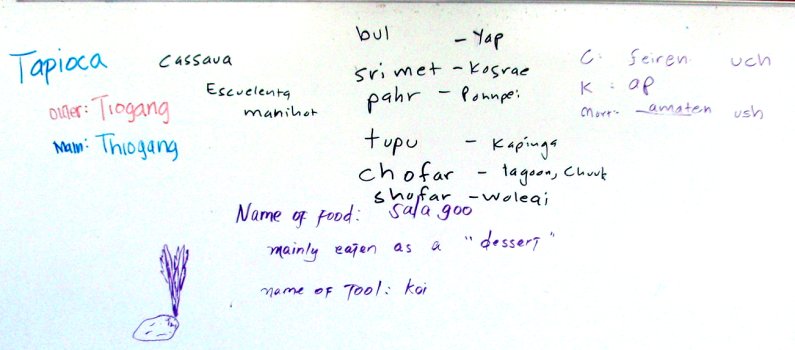 Tapioca
Cassava
Escuelenta
manihot
Outer: Tiogang
Main: Thiogang
bul - Yap
srimet - Kosrae
pahr - Pohnpei
tupu - Kapinga
chofar - lagoon, Chuuk
shofar - woleai
C: feiren uch
K: ap
Mort: amaten ush
Name of food: Salagoo
mainly eaten as a "dessert"
name of Tool: Koi